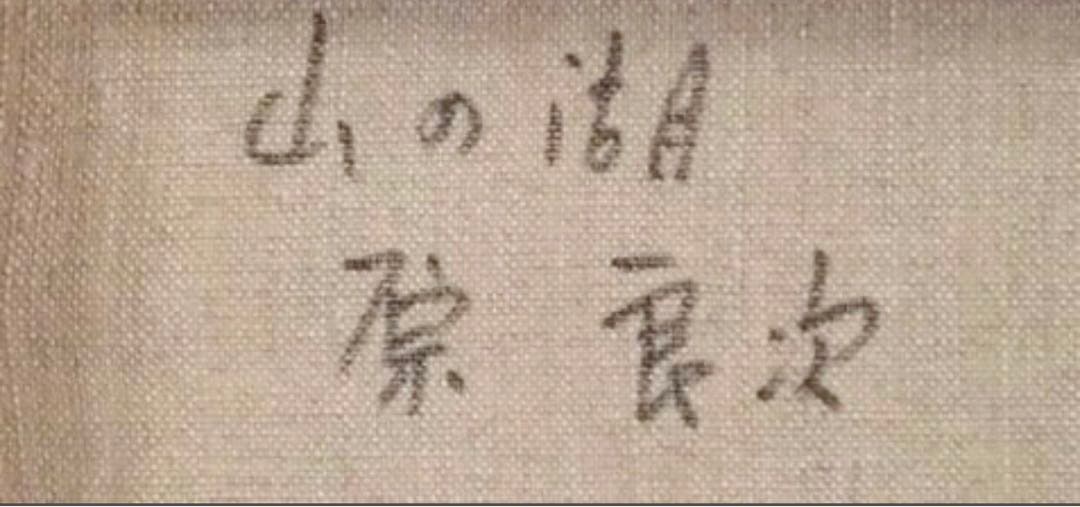 山の湖
原 良次